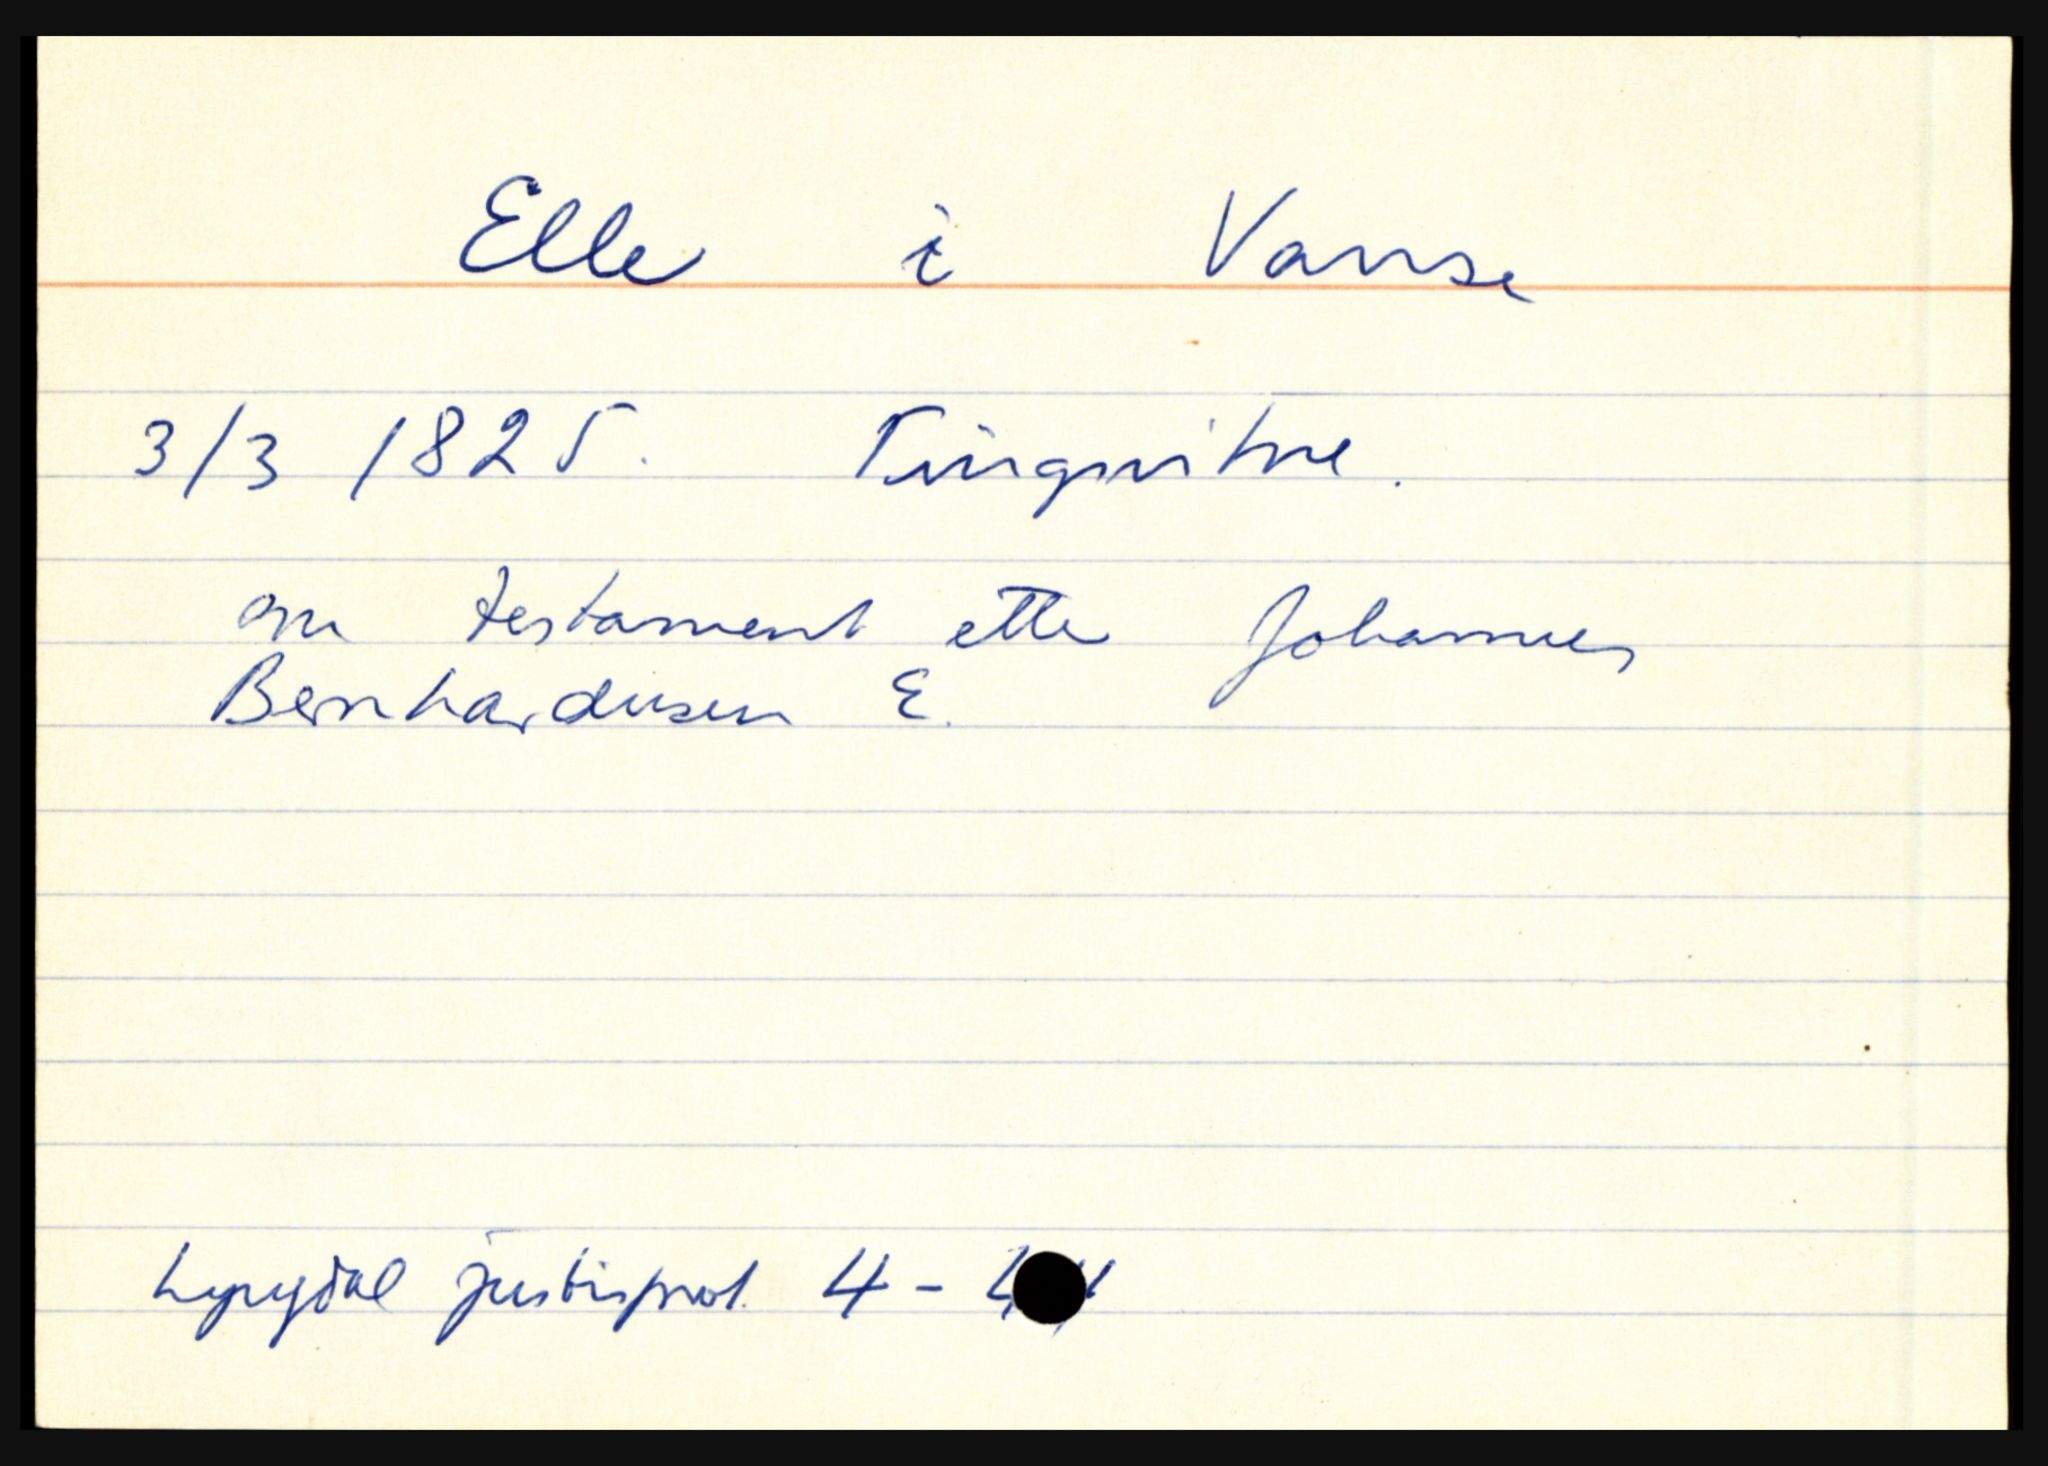 Elle i Vanse
3/3 1825. Tingsvitne.
om testament etter Johannes
Bernhardusen E.
Lyngdal justisprot. 4 -